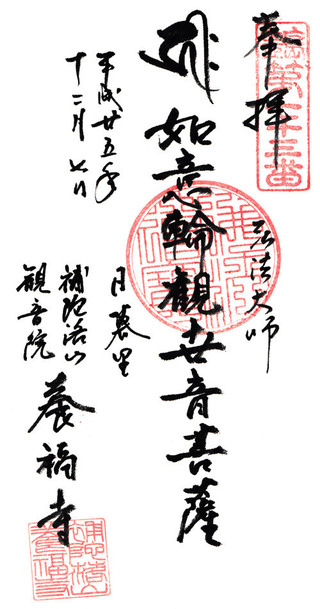 奉拝
弘法大師
如意輪観世音菩薩
日暮里
平成廿五年
十二月七日
補陀洛山
観音院
養福寺